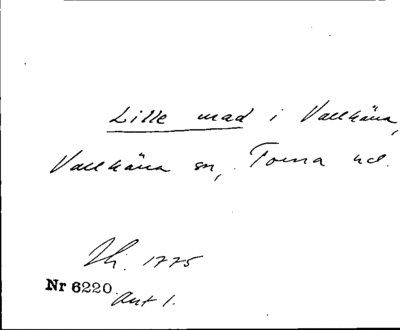 Lille mad i Vallkärra,
Vallkärra sn, Torna hd.
Hi. 1775
Nr 6220. Akt 1.